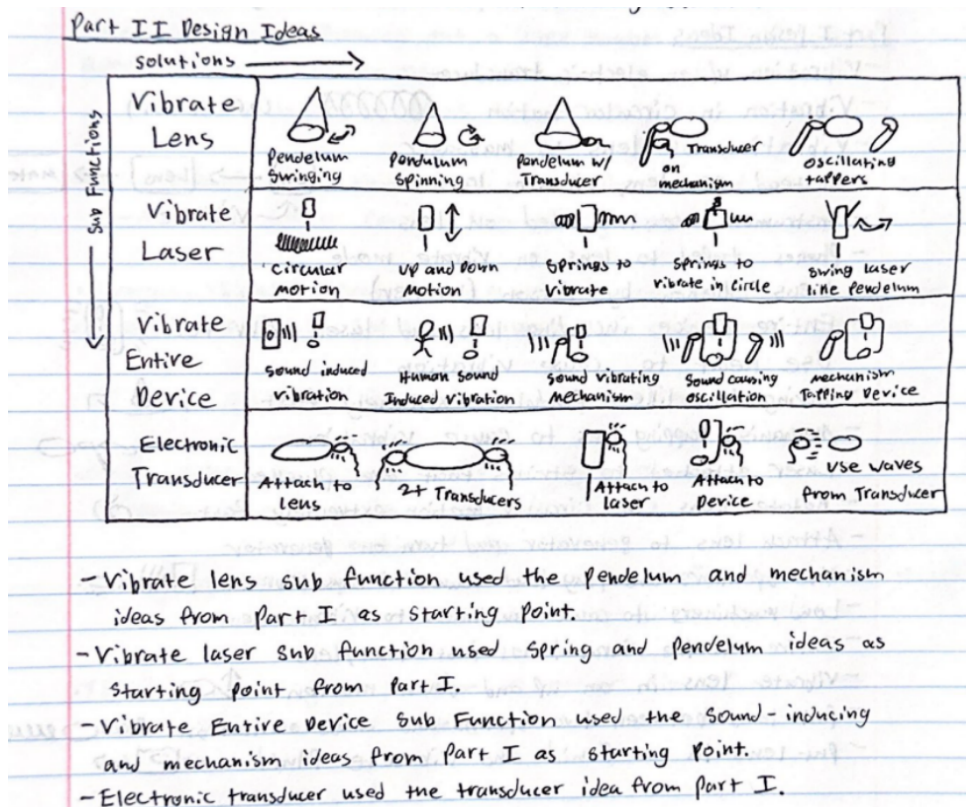 Part II Design Ideas
Solutions
Sub Functions
Vibrate
Lens
Pendelum
Swinging
Pendulum
Spinning
Pendelum w/
Transducer
Transducer
on
mechanism
oscillating
tappers
Vibrate
Laser
Circular
motion
Up and Down
Motion
Springs to
Vibrate
Springs to
vibrate in circle
Swing laser
like pendelum
Vibrate
Entire
Device
Sound induced
vibration
Human Sound
Induced Vibration
Sound vibrating
mechanism
Sound causing
oscillation
mechanism
Tapping Device
Electronic
Transducer
Attach to
Lens
2+ Transducers
Attach to
laser
Attach to
Device
Use waves
from Transducer
- Vibrate lens sub function used the pendelum and mechanism
ideas from Part I as starting point.
- Vibrate laser sub function used spring and pendelum ideas as
starting point from Part I.
- Vibrate Entire Device Sub Function used the sound-inducing
and mechanism ideas from Part I as starting point.
- Electronic transducer used the transducer idea from Part I.